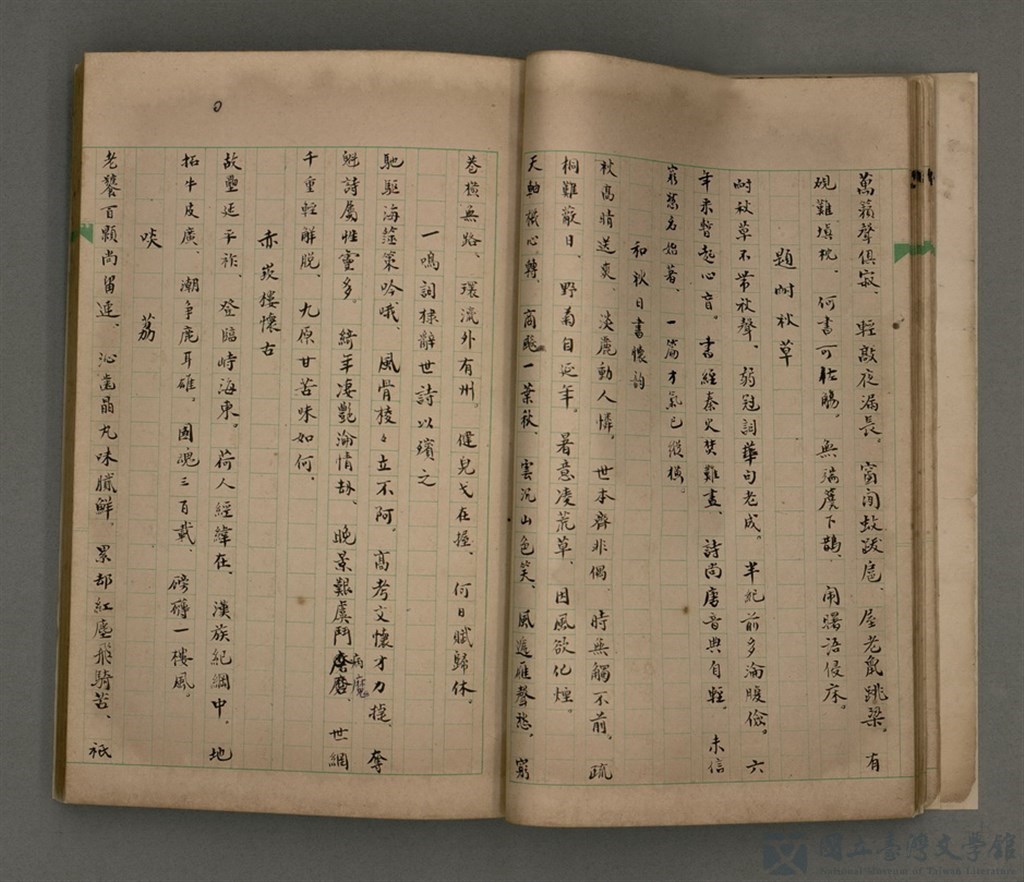 萬籟聲俱寂、輕敲夜漏長。窗閒蚊跋扈、屋老鼠跳梁。有
硯難填枕、何書可枯腸。無端簷下鵲、鬧曙語侵床。
題樹秋草
樹秋草不帶秋聲、弱冠詞華句老成。半紀前多淪腹儉。六
年來暫起心盲。書經秦火焚難盡、詩尚唐音典自輕。未信
窮愁名始著、一篇才氣已縱橫。
和秋日書懷韵
秋高晴送爽、淡麗動人憐。世本齊非偶、時無觸不前。疏
桐難蔽日、野菊自延年。著意凌荒草、因風欲化煙。
天軸機心轉、商飈一葉秋、雲沉山色笑、風遞雁聲愁。窮
巷橫無路、環流外有州。健兒戈在握、何日賦歸休。
一鳴詞棣辭世詩以殯之
馳驅海藻策吟哦、風骨棱々立不阿。高考文懷才刀挺、奪
魁詩屬性靈多。綺年凄艷淪情劫、晚景艱虞鬥病魔、世網
千重輕解脫、九原甘苦味如何。
赤崁樓懷古
故壘延平祚、登臨峙海東。荷人經緯在、漢族紀綱中、地
拓牛皮廣、潮爭鹿耳雄。國魂三百載、磅礡一樓風。
啖荔
老饕百顆尚留連、沁齒晶丸味膩鮮、累却紅塵飛騎苦、祇
國立臺灣文學館
National Museum of Taiwan Literature